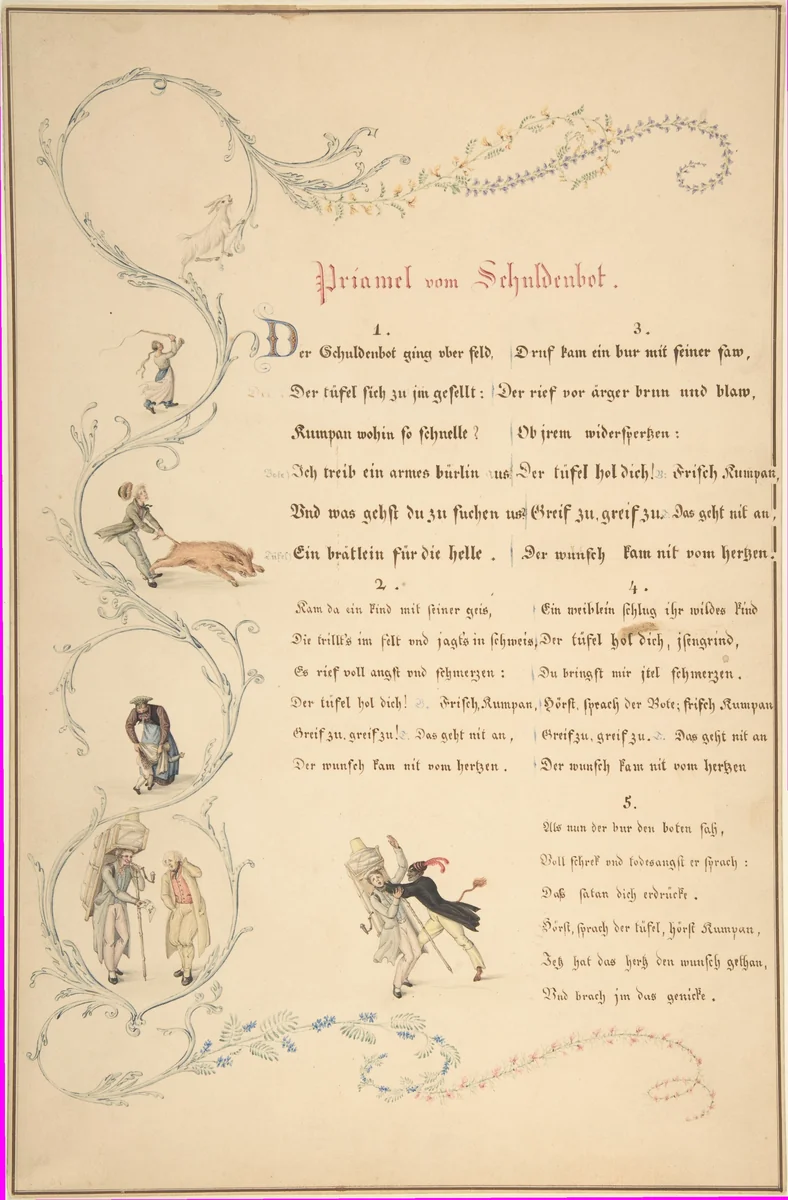 Priamel vom Schuldenbot.
1.
Der Schuldenbot ging vber feld,
Der tüfel sich zu jm gesellt:
Kumpan wohin so schnelle?
Ich treib ein armes bürlin us
Vnd was gehst du zu suchen us?
Ein brätlein für die helle.
2.
Kam da ein kind mit seiner geis,
Die trillt's im felt vnd jagt's in schweis,
Es rief voll angst vnd schmerzen:
Der tüfel hol dich! Frisch, Kumpan,
Greif zu, greif zu! Das geht nit an,
Der wunsch kam nit vom hertzen.
3.
Druf kam ein bur mit seiner saw,
Der rief vor ärger brun und blaw,
Ob jrem widerspertzen:
Der tüfel hol dich! Frisch Kumpan,
Greif zu, greif zu. Das geht nit an,
Der wunsch kam nit vom hertzen.
4.
Ein weiblein schlug ihr wildes kind
Der tüfel hol dich, jsengrind,
Du bringst mir jtel schmerzen.
Hörst, sprach der Bote; frisch Kumpan
Greif zu, greif zu. Das geht nit an
Der wunsch kam nit vom hertzen
5.
Als nun der bur den boten sah,
Voll schrek vnd todesangst er sprach:
Daß satan dich erdrücke.
Hörst, sprach der tüfel, hörst Kumpan,
Jetz hat das hertz den wunsch gethan,
Vnd brach jm das genicke.